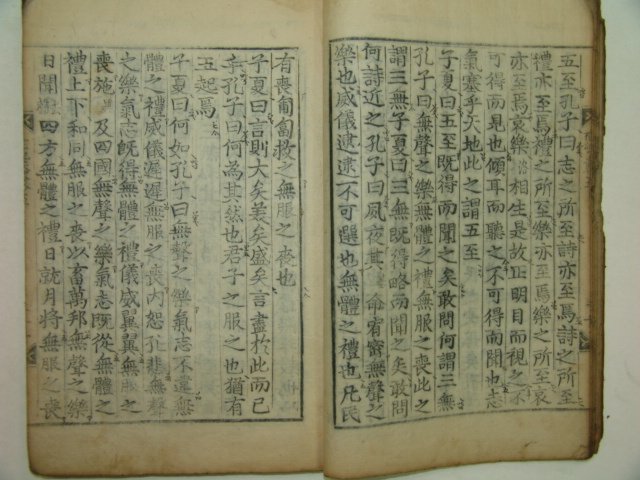 五至孔子曰志之所至詩亦至焉詩之所至
禮亦至焉禮之所至樂亦至焉樂之所至哀
亦至焉哀樂相生是故正明目而視之不
可得而見也傾耳而聽之不可得而聞也志
氣塞乎天地此之謂五至
子夏曰五至既得而聞之矣敢問何謂三無
孔子曰無聲之樂無體之禮無服之喪此之
謂三無子夏曰三無既得略而聞之矣敢問
何詩近之孔子曰夙夜其命宥密無聲之
樂也威儀逮逮不可選也無體之禮也凡民
有喪匍匐救之無服之喪也
子夏曰言則大矣美矣盛矣言盡於此而已
乎孔子曰何為其然也君子之服之也猶有
五起焉
子夏曰何如孔子曰無聲之樂氣志不違無
體之禮威儀遲遲無服之喪內恕孔悲無聲
之樂氣志既得無體之禮威儀翼翼無服之
喪施及四國無聲之樂氣志既從無體之
禮上下和同無服之喪以畜萬邦無聲之樂
日聞四方無體之禮日就月將無服之喪